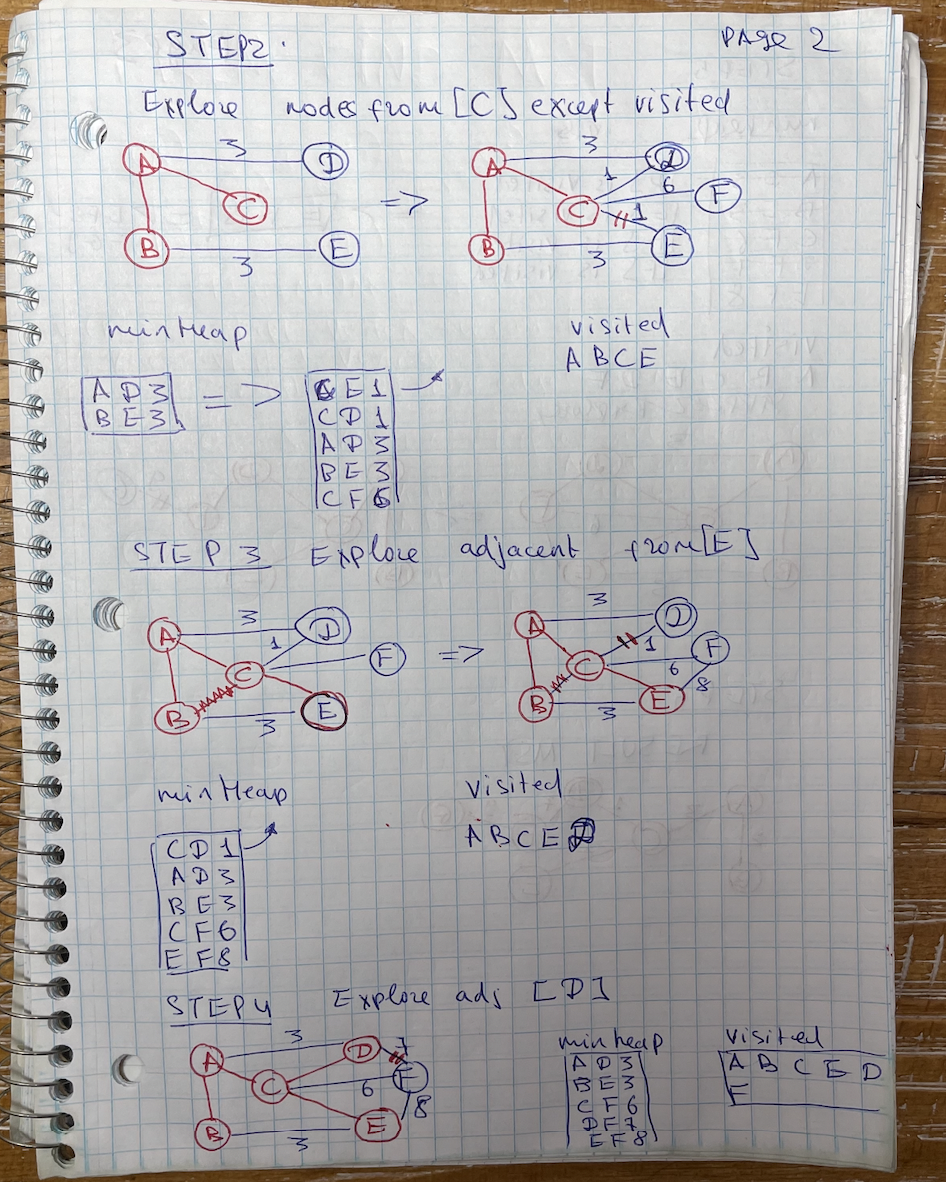 STEP2.
PAGE 2
Explore nodes from [C] except visited
A 3 D
C
B 3 E
=>
A 3 D
1
6 F
C
1
B 3 E
minHeap
A D 3
B E 3
=>
C E 1
C D 1
A D 3
B E 3
C F 6
visited
A B C E
STEP 3 Explore adjacent from [E]
A 3 D
1
C F
B 3 E
=>
A 3 D
1
C F
6
B 3 E 8
minHeap
C D 1
A D 3
B E 3
C F 6
E F 8
visited
A B C E D
STEP 4 Explore adj [D]
A 3 D 7
C 6 F
8
B 3 E
minheap
A D 3
B E 3
C F 6
D F 7
E F 8
visited
A B C E D
F